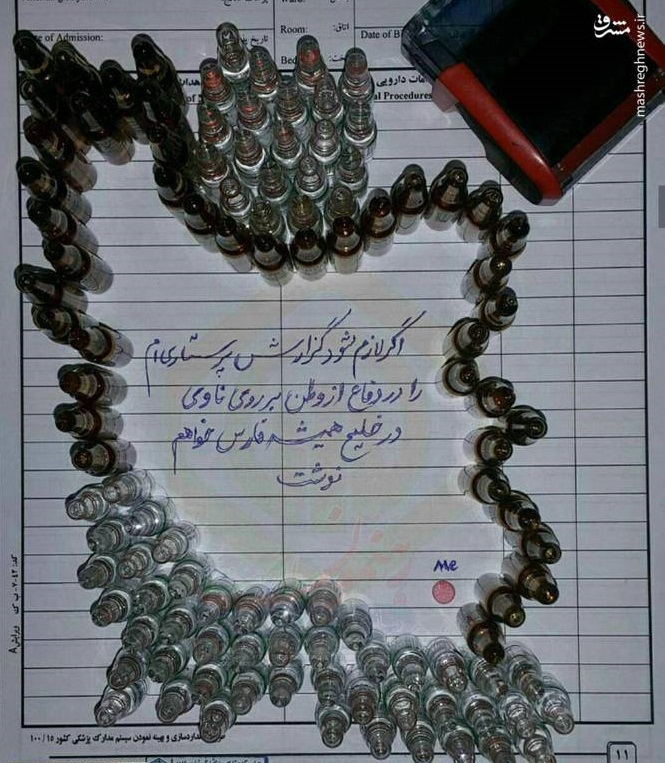 مشرق
mashreghnews.ir
of Admission:
Room:
اتاق:
تاریخ
Date of B
Procedures
اگر لازم شود گزارش پرستاری ام
را در دفاع از وطن بر روی ناوی
در خلیج همیشه فارس خواهم
نوشت
Me
ویرایش A
سازی و بهینه نمودن سیستم مدارک پزشکی کشور ۱۰۰/۱۵
۱۱